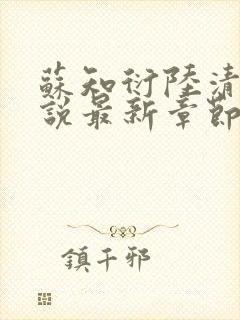 蘇知衍陸清
說最新章節
鎮千邪